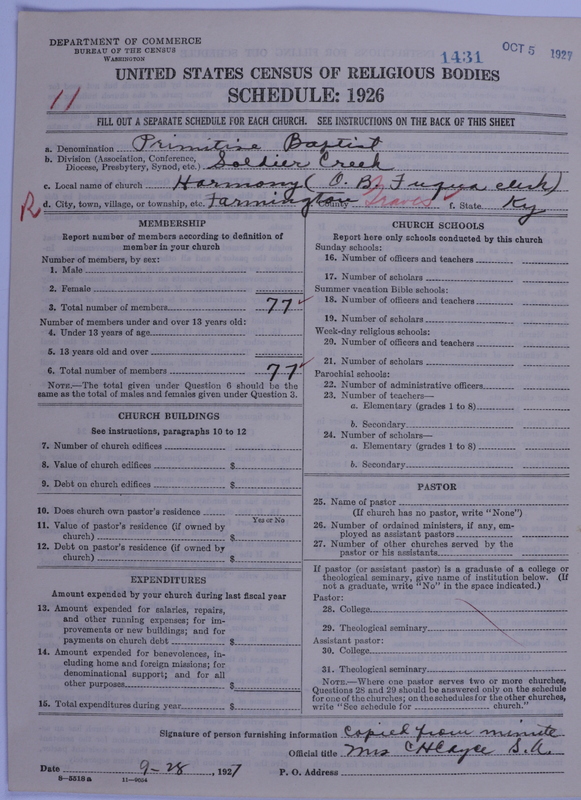 DEPARTMENT OF COMMERCE
BUREAU OF THE CENSUS
WASHINGTON
1431
OCT 5 1927
UNITED STATES CENSUS OF RELIGIOUS BODIES
SCHEDULE: 1926
11
FILL OUT A SEPARATE SCHEDULE FOR EACH CHURCH. SEE INSTRUCTIONS ON THE BACK OF THIS SHEET
a. Denomination Primitive Baptist
b. Division (Association, Conference,
Diocese, Presbytery, Synod, etc.) Soldier Creek
c. Local name of church Harmony (O. B. Fuqua clerk)
R d. City, town, village, or township, etc. Farmington County Graves f. State Ky
MEMBERSHIP
Report number of members according to definition of
member in your church
Number of members, by sex:
1. Male
2. Female
3. Total number of members 77
Number of members under and over 13 years old:
4. Under 13 years of age
5. 13 years old and over
6. Total number of members 77
NOTE.—The total given under Question 6 should be the
same as the total of males and females given under Question 3.
CHURCH BUILDINGS
See instructions, paragraphs 10 to 12
7. Number of church edifices
8. Value of church edifices $
9. Debt on church edifices $
10. Does church own pastor's residence
Yes or No
11. Value of pastor's residence (if owned by
church) $
12. Debt on pastor's residence (if owned by
church) $
EXPENDITURES
Amount expended by your church during last fiscal year
13. Amount expended for salaries, repairs,
and other running expenses; for im-
provements or new buildings; and for
payments on church debt $
14. Amount expended for benevolences, in-
cluding home and foreign missions; for
denominational support; and for all
other purposes $
15. Total expenditures during year $
CHURCH SCHOOLS
Report here only schools conducted by this church
Sunday schools:
16. Number of officers and teachers
17. Number of scholars
Summer vacation Bible schools:
18. Number of officers and teachers
19. Number of scholars
Week-day religious schools:
20. Number of officers and teachers
21. Number of scholars
Parochial schools:
22. Number of administrative officers
23. Number of teachers—
a. Elementary (grades 1 to 8)
b. Secondary
24. Number of scholars—
a. Elementary (grades 1 to 8)
b. Secondary
PASTOR
25. Name of pastor
(If church has no pastor, write "None")
26. Number of ordained ministers, if any, em-
ployed as assistant pastors
27. Number of other churches served by the
pastor or his assistants
If pastor (or assistant pastor) is a graduate of a college or
theological seminary, give name of institution below. (If
not a graduate, write "No" in the space indicated.)
Pastor:
28. College
29. Theological seminary
Assistant pastor:
30. College
31. Theological seminary
NOTE.—Where one pastor serves two or more churches,
Questions 28 and 29 should be answered only on the schedule
for one of the churches; on the schedules for the other churches,
write "See schedule for church."
Signature of person furnishing information Copied from minute
Official title Mrs C H Cayce S.A.
Date 9-28, 1927 P. O. Address
8-5518a 11-9034